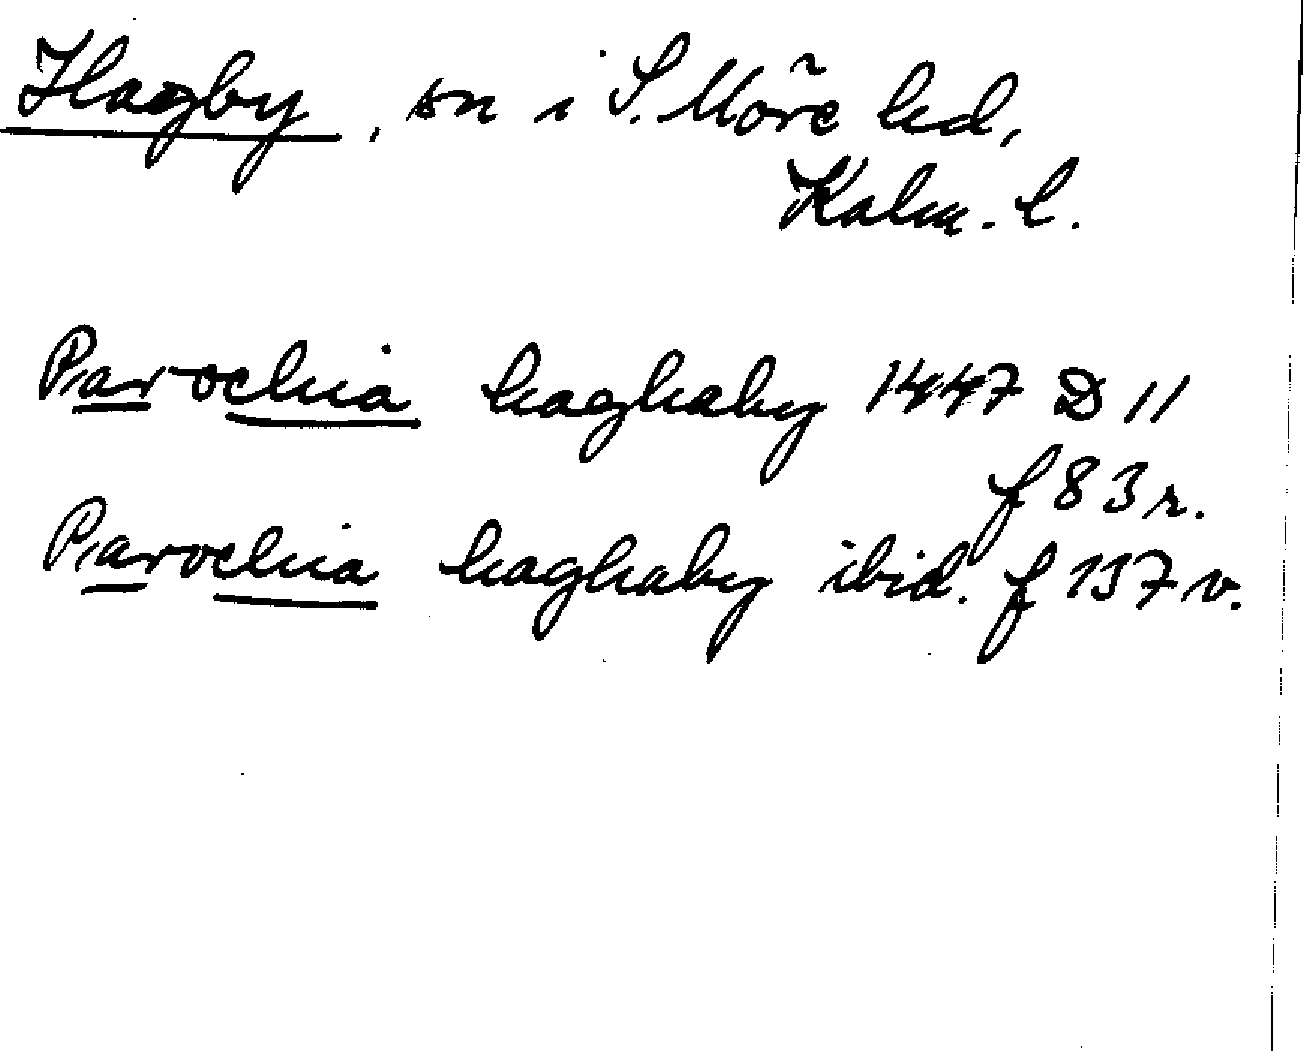 Hagby, sn i S. Möre hd,
Kalm. l.
Parochia haghaby 1447 D 11
f 83 r.
Parochia haghaby ibid. f 137 v.